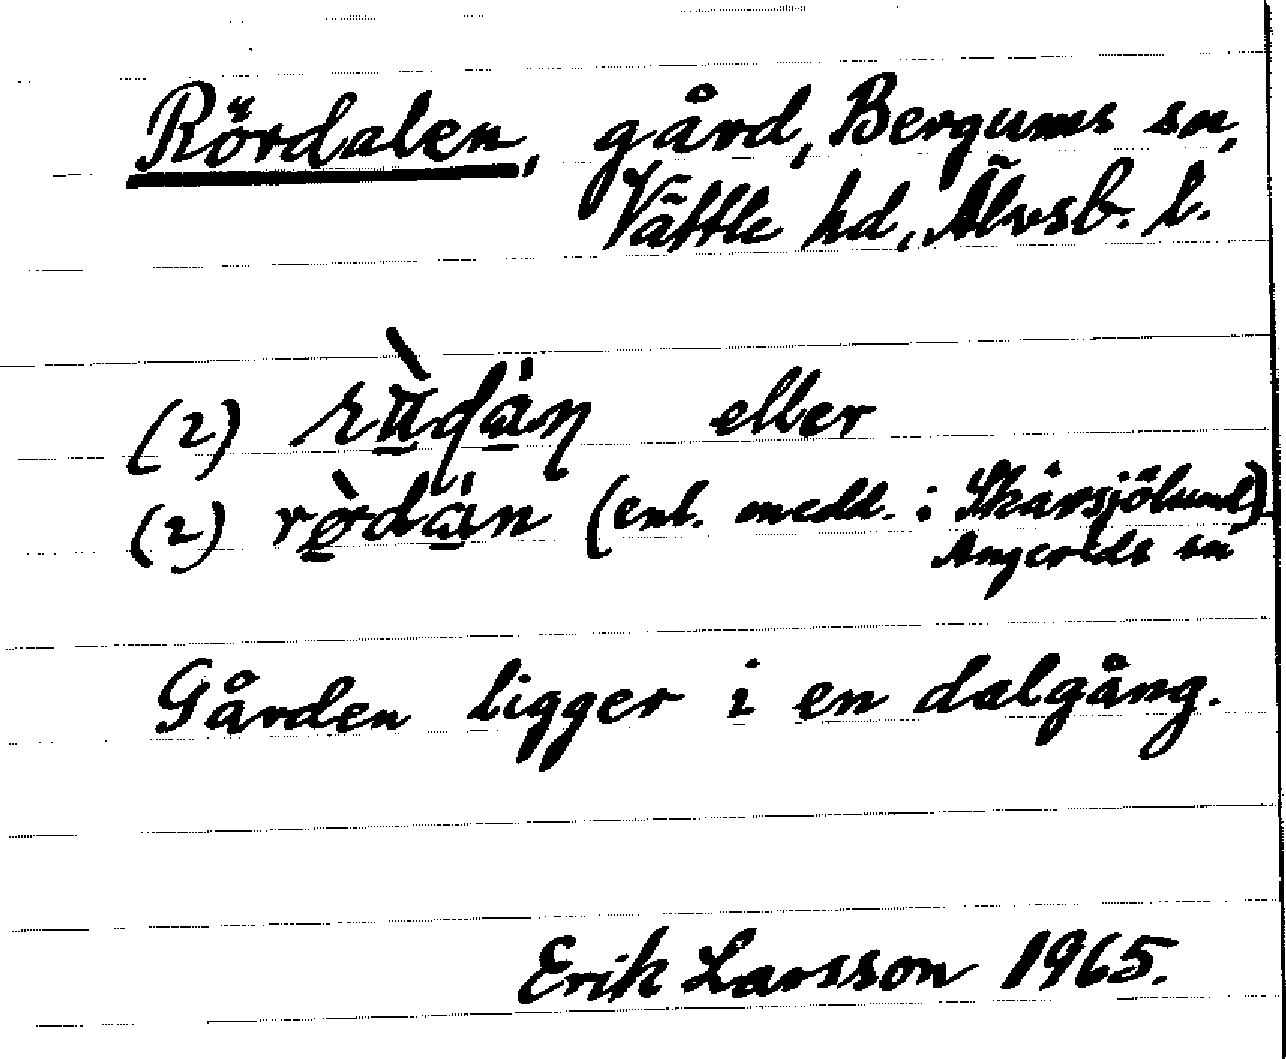 Rördalen, gård, Bergums sn,
Vättle hd, Älvsb. l.
(2) eller
(2) (enl. medd. i Skårsjölund)
Angereds sn
Gården ligger i en dalgång.
Erik Larsson 1965.